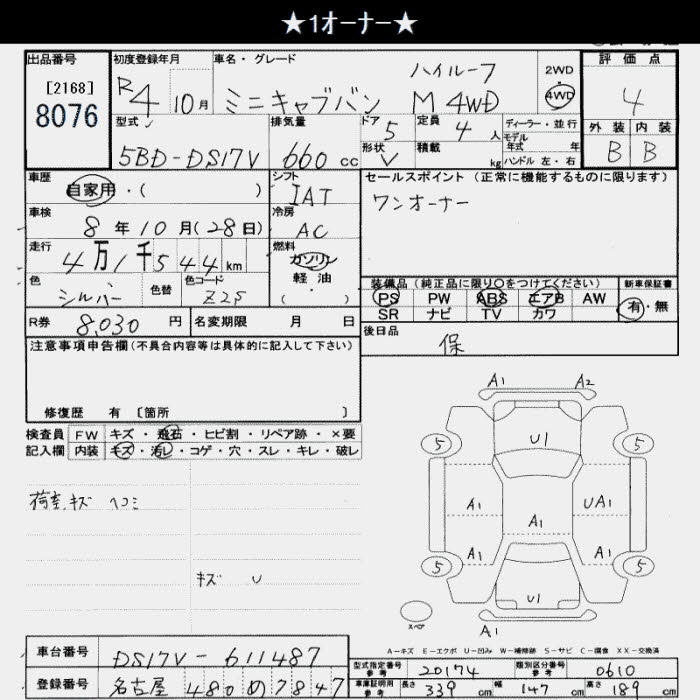 ★1オーナー★
出品番号 初度登録年月 車名・グレード 評価点
[2168]
8076
R4 10月 ミニキャブバン ハイルーフ M 4WD 2WD 4WD 4
型式 排気量 ドア 5 定員 4人 ディーラー・並行 外装 内装
5BD-DS17V 660 cc 形状 V 積載 kg モデル年式 年 ハンドル 左・右 B B
車歴 シフト セールスポイント(正常に機能するものに限ります)
自家用・( ) IAT ワンオーナー
車検 8年10月(28日) 冷房 AC
走行 4万1千544km 燃料 ガソリン・軽油 ( )
色 シルバー 色替 色コード Z25
装備品(純正品に限り○をつけてください) 新車保証書
PS PW ABS エアB AW 有・無
SR ナビ TV カワ
R券 8,030円 名変期限 月 日
後日品 保
注意事項申告欄(不具合内容等は具体的に記入して下さい)
修復歴 有 [箇所 ]
検査員 FW キズ・飛石・ヒビ割・リペア跡・×要
記入欄 内装 キズ・汚レ・コゲ・穴・スレ・キレ・破レ
荷室.キズ ヘコミ
キズ U
A1 A2
U1
5 5
A1 A1 UA1
A1 A1
5 5
U1
スペア A1
A-キズ E-エクボ U-凹み W-補修跡 S-サビ C-腐食 XX-交換済
車台番号 DS17V-611487
登録番号 名古屋 480 め 7847
型式指定番号 参考 20174 類別区分番号 参考 0610
車庫証明用 参考 長さ 339cm 幅 147cm 高さ 189cm